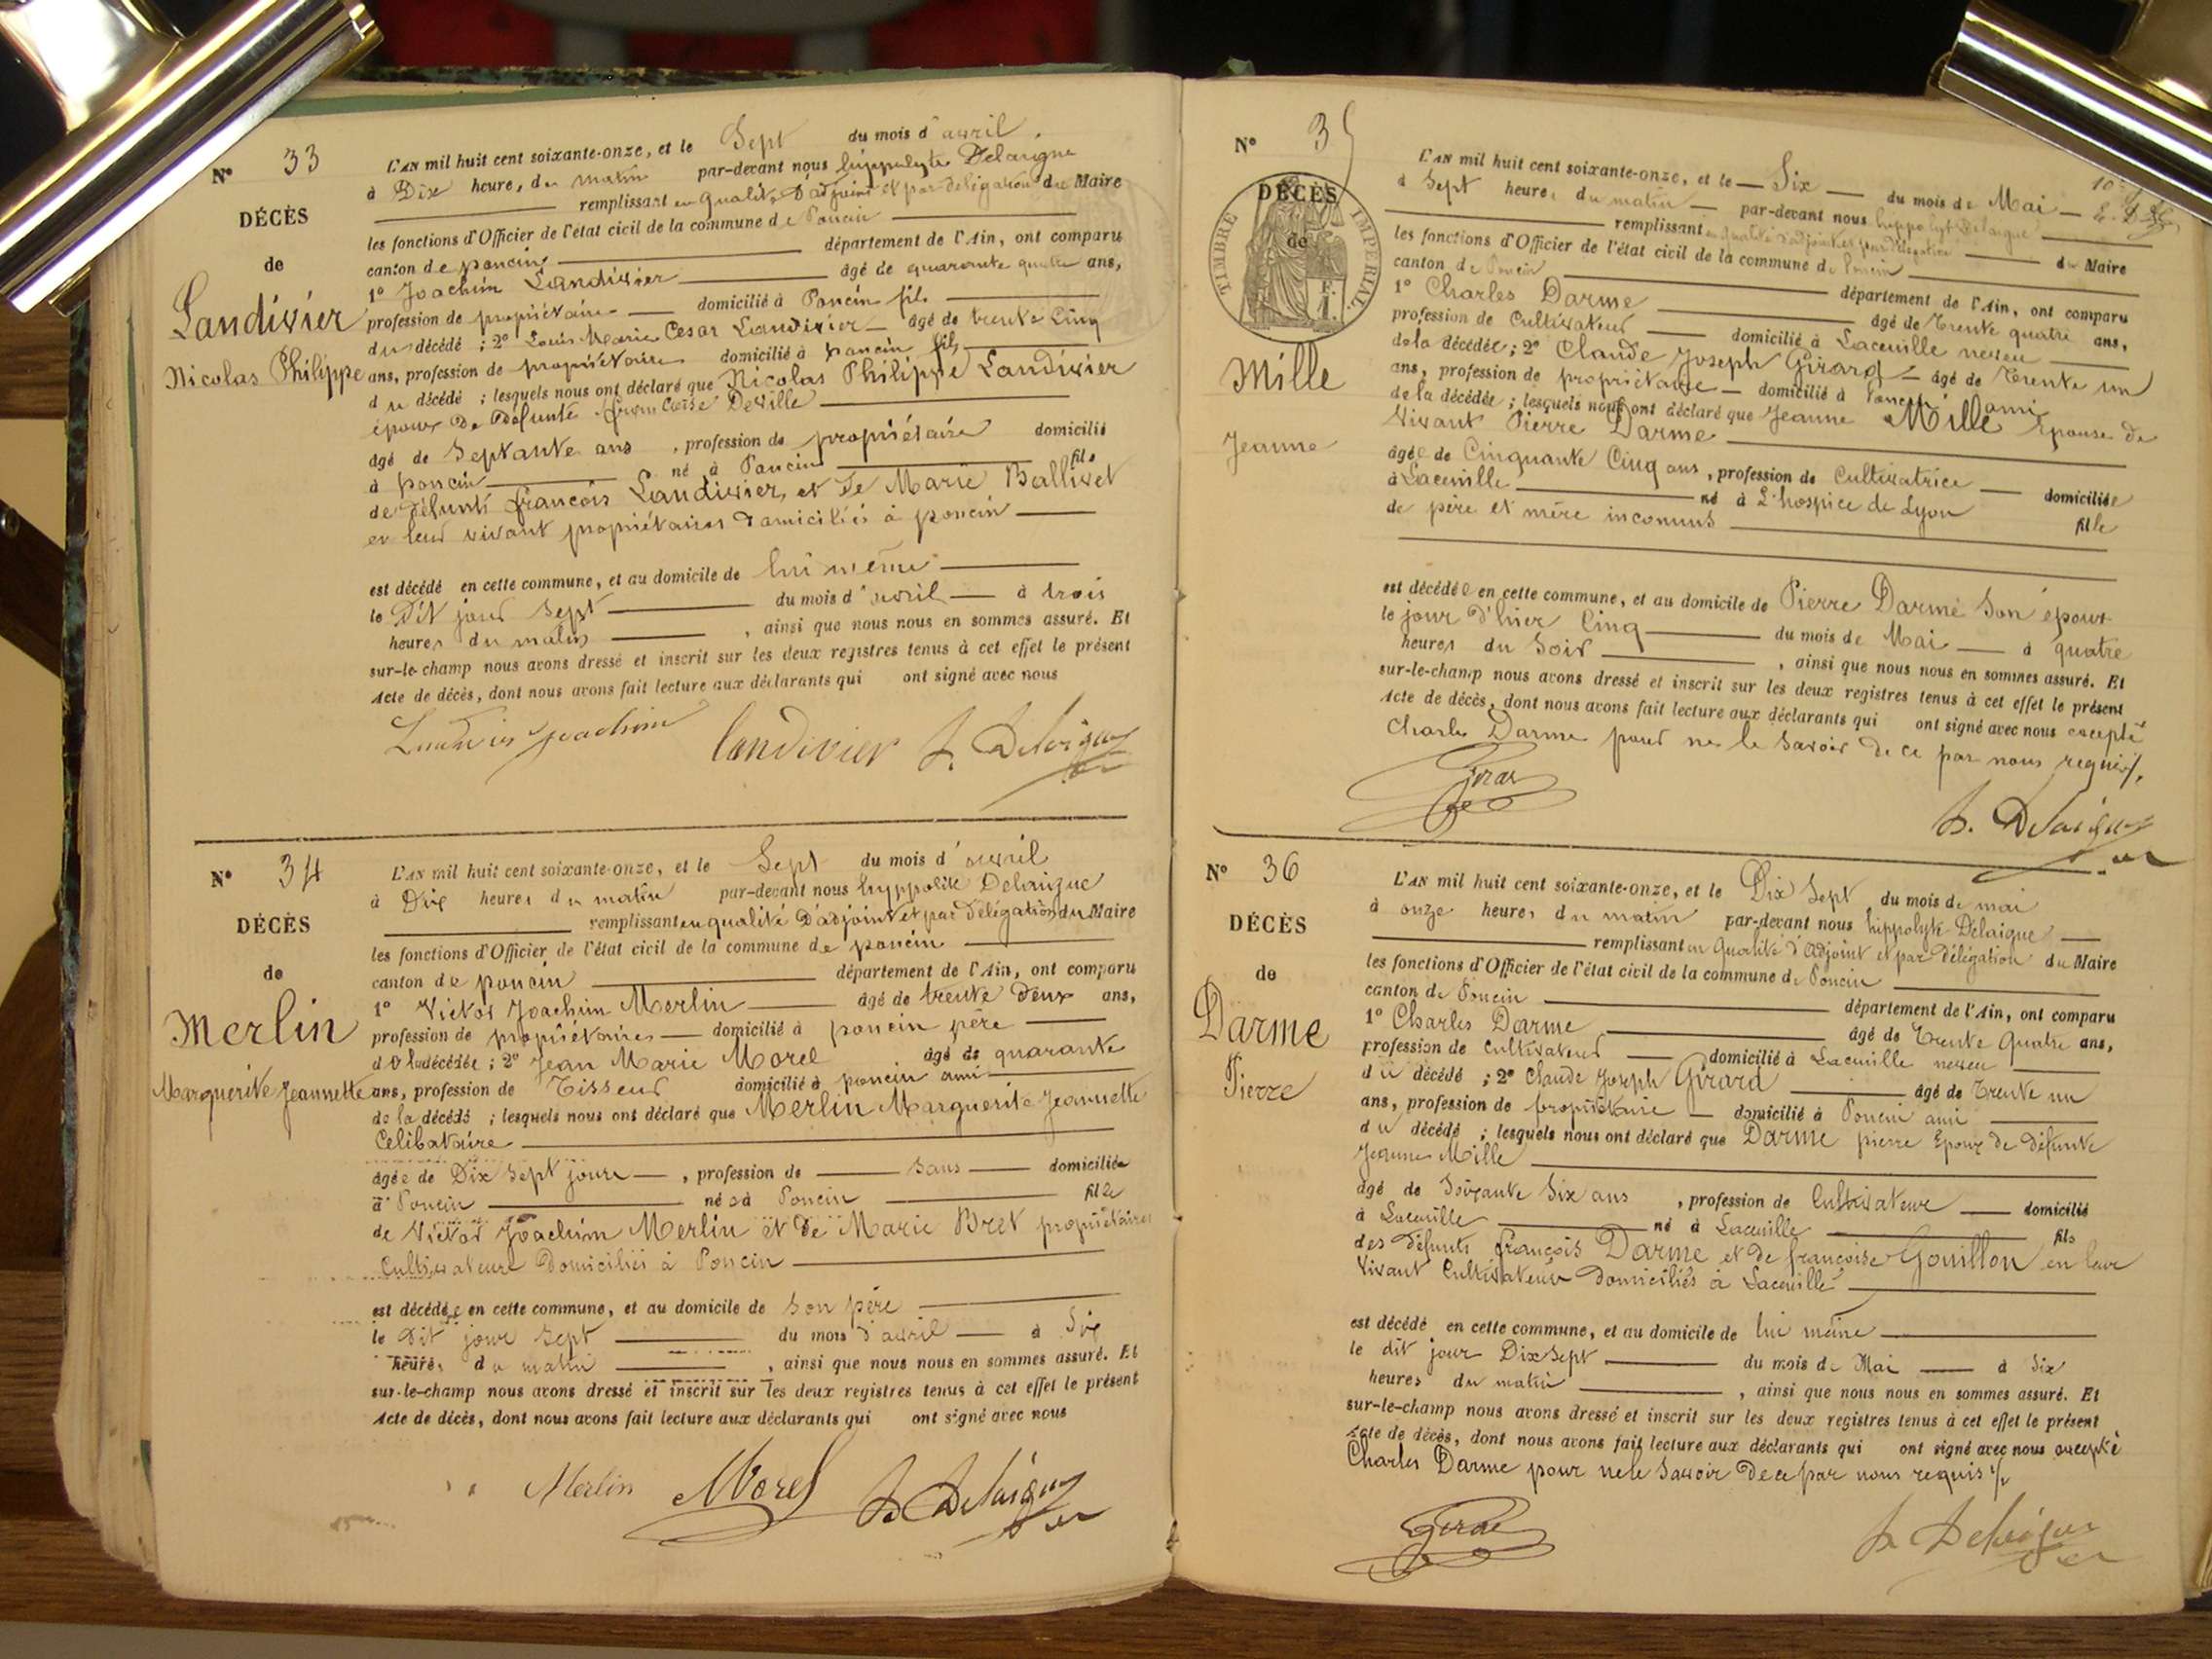 N° 33
DÉCÈS
de
Landivier
Nicolas Philippe
L'AN mil huit cent soixante-onze, et le Sept du mois d'avril
à Dix heures du matin par-devant nous hippolyte Delaigue
remplissant en qualité d'adjoint et par délégation du Maire
les fonctions d'Officier de l'état civil de la commune de Poncin
canton de poncin département de l'Ain, ont comparu
1° Joachim Landivier âgé de quarante quatre ans,
profession de propriétaire domicilié à Poncin fils
du décédé ; 2° Louis Marie Cesar Landivier âgé de trente Cinq
ans, profession de propriétaire domicilié à poncin fils
du décédé ; lesquels nous ont déclaré que Nicolas Philippe Landivier
époux De Défunte françoise Deville
âgé de Septante ans , profession de propriétaire domicilié
à poncin né à Poncin fils
de défunts françois Landivier, et de Marie Ballivet
en leur vivant propriétaires domiciliés à poncin
est décédé en cette commune, et au domicile de lui même
le Dit jour Sept du mois d'avril à trois
heures du matin , ainsi que nous nous en sommes assuré. Et
sur-le-champ nous avons dressé et inscrit sur les deux registres tenus à cet effet le présent
Acte de décès, dont nous avons fait lecture aux déclarants qui ont signé avec nous
Joachim Landivier h. Delaigue
N° 34
DÉCÈS
de
Merlin
Marguerite Jeannette
L'AN mil huit cent soixante-onze, et le Sept du mois d'avril
à Dix heures du matin par-devant nous hyppolite Delaigue
remplissant en qualité D'adjoint et par Délégation du Maire
les fonctions d'Officier de l'état civil de la commune de poncin
canton de poncin département de l'Ain, ont comparu
1° Victor Joachim Merlin âgé de trente deux ans,
profession de propriétaires domicilié à poncin père
de la décédée ; 2° Jean Marie Morel âgé de quarante
ans, profession de Tisseur domicilié à poncin ami
de la décédé ; lesquels nous ont déclaré que Merlin Marguerite Jeannette
Celibataire
âgée de Dix Sept jours , profession de sans domiciliée
à Poncin née à Poncin fille
de Victor Joachim Merlin et de Marie Bret propriétaires
Cultivateurs Domiciliés à Poncin
est décédée en cette commune, et au domicile de son père
le Dit jour Sept du mois d'avril à Six
heures du matin , ainsi que nous nous en sommes assuré. Et
sur-le-champ nous avons dressé et inscrit sur les deux registres tenus à cet effet le présent
Acte de décès, dont nous avons fait lecture aux déclarants qui ont signé avec nous
Merlin Morel h. Delaigue
N° 35
TIMBRE IMPÉRIAL
DÉCÈS
de
Mille
Jeanne
L'AN mil huit cent soixante-onze, et le Six du mois de Mai
à Sept heures du matin par-devant nous hippolyt Delaigue
remplissant en qualité d'adjoint et par délégation du Maire
les fonctions d'Officier de l'état civil de la commune de Poncin
canton de Poncin département de l'Ain, ont comparu
1° Charles Darme âgé de Trente quatre ans,
profession de Cultivateur domicilié à Lacuille neveu
de la décédée ; 2° Claude Joseph Girard âgé de Trente un
ans, profession de propriétaire domicilié à Poncin ami
de la décédée ; lesquels nous ont déclaré que Jeanne Mille Epouse de
Vivant Pierre Darme
âgée de Cinquante Cinq ans, profession de Cultivatrice domiciliée
à né à L'hospice de Lyon fille
de père et mère inconnus
est décédée en cette commune, et au domicile de Pierre Darme Son époux
le jour d'hier Cinq du mois de Mai à quatre
heures du Soir , ainsi que nous nous en sommes assuré. Et
sur-le-champ nous avons dressé et inscrit sur les deux registres tenus à cet effet le présent
Acte de décès, dont nous avons fait lecture aux déclarants qui ont signé avec nous excepté
Charles Darme pour ne le Savoir de ce par nous requis
h. Delaigue
N° 36
DÉCÈS
de
Darme
Pierre
L'AN mil huit cent soixante-onze, et le Dix Sept du mois de mai
à onze heures du matin par-devant nous hippolyte Delaigue
remplissant en qualité d'Adjoint et par Délégation du Maire
les fonctions d'Officier de l'état civil de la commune de Poncin
canton de Poncin département de l'Ain, ont comparu
1° Charles Darme âgé de Trente Quatre ans,
profession de Cultivateur domicilié à Lacuille neveu
du décédé ; 2° Claude Joseph Girard âgé de Trente un
ans, profession de propriétaire domicilié à Poncin ami
du décédé ; lesquels nous ont déclaré que Darme pierre Epoux de défunte
Jeanne Mille
âgé de Soixante Six ans , profession de Cultivateur domicilié
à Lacuille né à Lacuille fils
des défunts françois Darme et de françoise Gouillon en leur
vivant Cultivateurs domiciliés à Lacuille
est décédé en cette commune, et au domicile de lui même
le dit jour Dix Sept du mois de Mai à Six
heures du matin , ainsi que nous nous en sommes assuré. Et
sur-le-champ nous avons dressé et inscrit sur les deux registres tenus à cet effet le présent
Acte de décès, dont nous avons fait lecture aux déclarants qui ont signé avec nous excepté
Charles Darme pour ne le Savoir de ce par nous requis
h. Delaigue